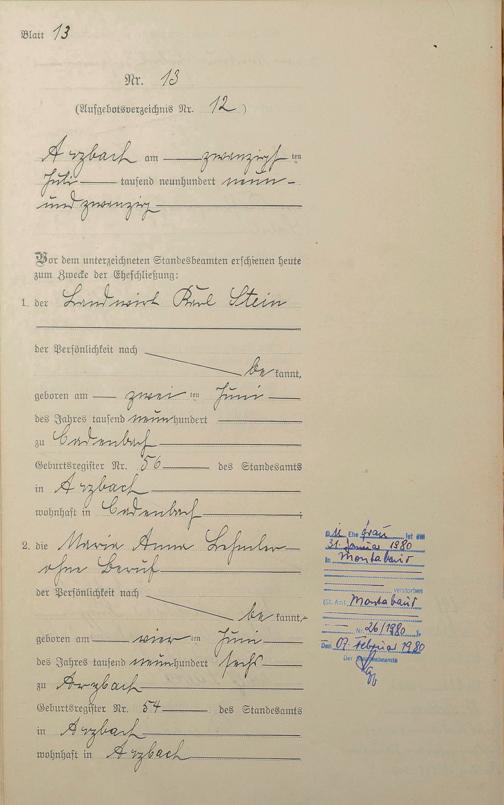 Blatt 13
Nr. 13
(Aufgebotsverzeichnis Nr. 12)
Arzbach am zwanzigsten
Juli tausend neunhundert neun-
und zwanzig
Vor dem unterzeichneten Standesbeamten erschienen heute
zum Zwecke der Eheschließung:
1. der Landwirt Karl Stein
der Persönlichkeit nach
bekannt,
geboren am zweiten Juni
des Jahres tausend neunhundert
zu Cadenbach
Geburtsregister Nr. 56 des Standesamts
in Arzbach
wohnhaft in Cadenbach
2. die Maria Anna
ohne Beruf
der Persönlichkeit nach
bekannt,
geboren am vierten Juni
des Jahres tausend neunhundert sechs
zu Arzbach
Geburtsregister Nr. 54 des Standesamts
in Arzbach
wohnhaft in Arzbach
Ehefrau ist am
31. Januar 1980
in Montabaur
verstorben
(St. Amt Montabaur
Nr. 26/1980).
Den 07. Februar 1980
Der Standesbeamte